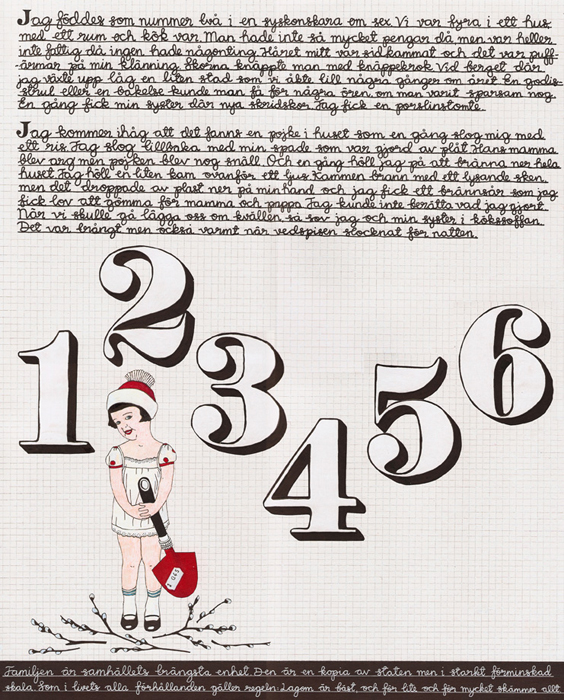 Jag föddes som nummer två i en syskonskara om sex Vi var fyra i ett hus
med ett rum och kök var. Man hade inte så mycket pengar då men var heller
inte fattig då ingen hade någonting. Håret mitt var sidkammat och det var puff-
ärmar på min klänning. Skorna knäppte man med knäppekrok. Vid berget där
jag växte upp låg en liten stad som vi åkte till några gånger om året En godis-
strut eller en bakelse kunde man få för några ören, om man varit sparsam nog.
En gång fick min syster där nya skridskor. Jag fick en porslinstomte.
Jag kommer ihåg att det fanns en pojke i huset som en gång slog mig med
ett ris. Jag slog tillbaka med min spade som var gjord av plåt. Hans mamma
blev arg men pojken blev nog snäll. Och en gång höll jag på att bränna ner hela
huset. Jag höll en liten kam ovanför ett ljus. Kammen brann med ett lysande sken
men det droppade av plast ner på min hand och jag fick ett brännsår som jag
fick lov att gömma för mamma och pappa. Jag kunde inte berätta vad jag gjort.
När vi skulle gå lägga oss om kvällen så sov jag och min syster i kökssoffan.
Det var trångt men också varmt när vedspisen slocknat för natten.
1 2 3 4 5 6
Familjen är samhällets trängsta enhet. Den är en kopia av staten men i starkt förminskad
skala. Som i livets alla förhållanden gäller regeln: Lagom är bäst, och för lite och för mycket skämmer allt